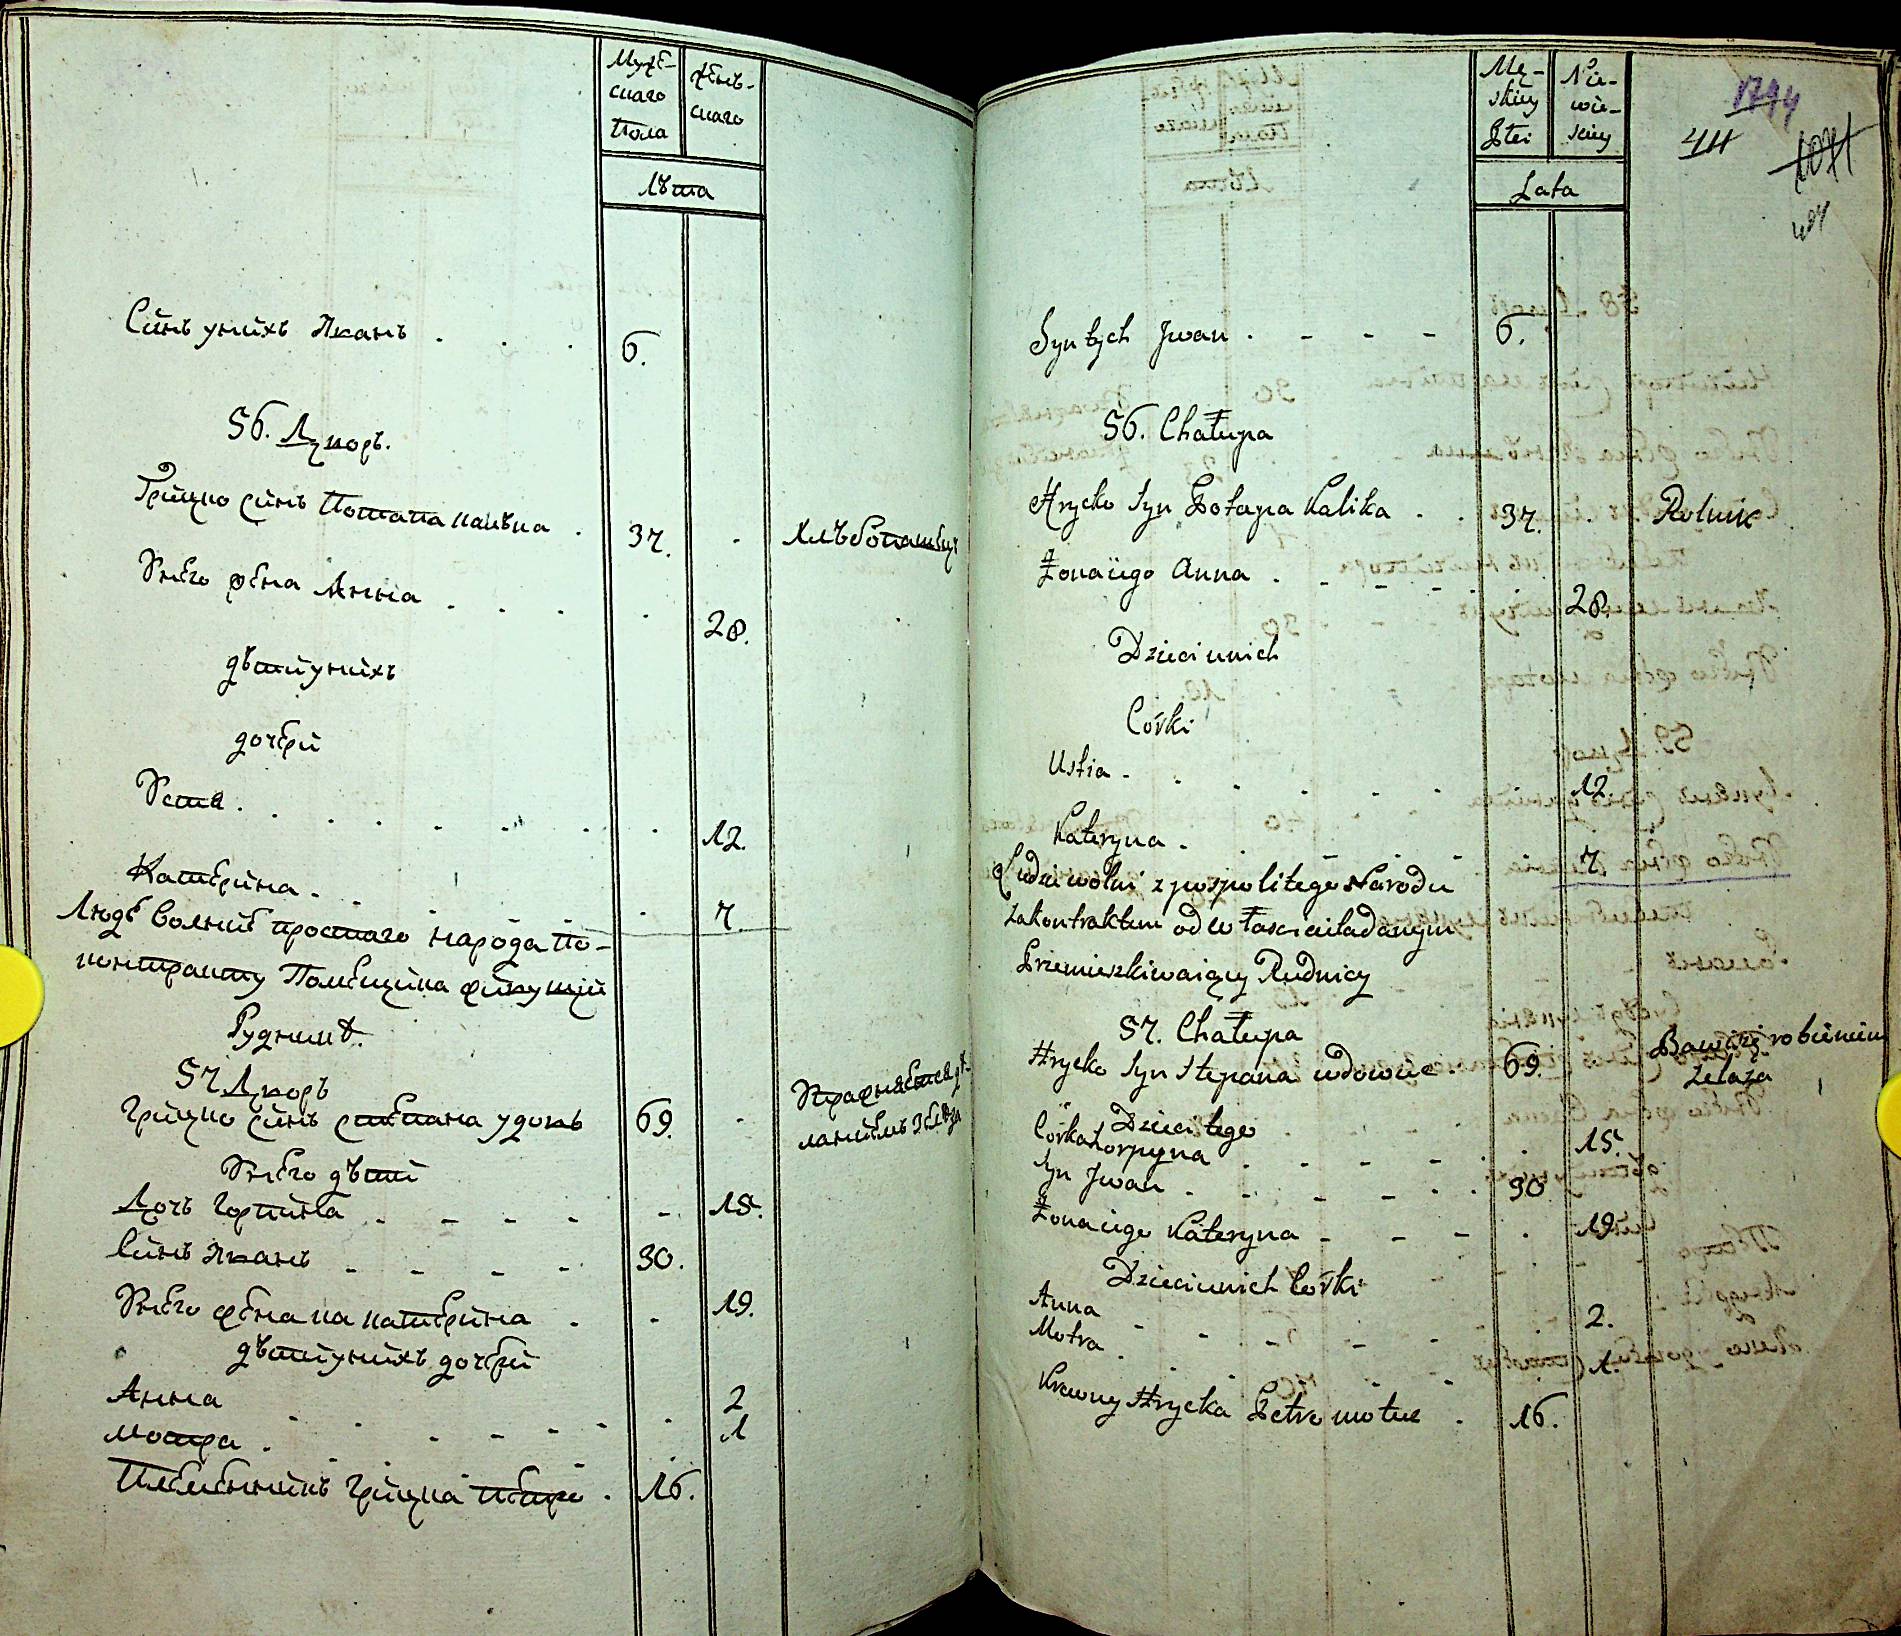 Муже-
скаго
Пола
жень-
скаго
лѣта
Синъ унихъ Иванъ . . . 6.
56. Двор.
Грицко синъ Потапа калѣка . 37. . Хлѣбопашец
Унего жена Анна . . . . 28.
дѣти унихъ
дочери
Устя . . . . . . . 12.
Катерина . . . . 7
Люде волние простаго народа По-
контракту Помещика живущии
Рудникѣ.
57. Дворъ
Грицко синъ степана удовъ 69. .
Унего дѣти
Дочь Горпина . - - - - 15.
Синъ Иванъ - - - - 30.
Унего женака катерина . . 19.
дѣти унихъ дочери
Анна . . . - - . . 2
мотра . . - . . . 1
Племенникъ Грицка петро . 16.
Mę-
skiey
Płci
Nie-
wie-
skiey
Lata
1794
411
1071
Syn tych Jwan . - - - 6.
56. Chałupa
Hrycko Syn Potapa Kalika . . 37. . Rolnik
Żona iego Anna . . . . . . 28.
Dzieci u nich
Corki
Ustia - . . . . . . 12
Kateryna . . . . 7.
Ludzi wolni z pospolitego Narodu
zakontraktem od włascicila danym
Przemieszkiwaiący Rudnicy
57. Chałupa
Hrycko Syn Stepana wdowiec . 69. Bawi się robieniem
żelaza
Dzieci tego
Corka Horpyna . . - - - 15.
Syn Jwan . - - - . . 30
Żona iego Kateryna - - - - . 19.
Dzieci u nich Corki
Anna - - - - - . 2.
Motra . . . . - - . 1.
Krewny Hrycka Petro motue . 16.